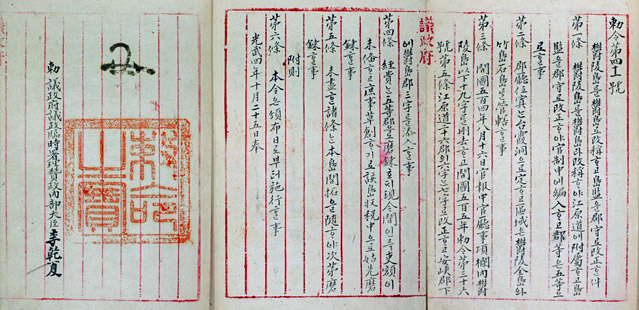 勅令第四十一號
鬱陵島를鬱島로改稱ᄒᆞ고島監을郡守로改正ᄒᆞᆫ件
第一條 鬱陵島를鬱島라改稱ᄒᆞ야江原道에附屬ᄒᆞ고島
監을郡守로改正ᄒᆞ야官制中에編入ᄒᆞ고郡等은五等으
로ᄒᆞᆯ事
第二條 郡廳位寘ᄂᆞᆫ台霞洞으로定ᄒᆞ고區域은鬱陵全島와
竹島石島를管轄ᄒᆞᆯ事
第三條 開國五百四年八月十六日官報中官廳事項欄內鬱
陵島以下十九字를刪去ᄒᆞ고開國五百五年勅令第三十六
號第五條江原道二十六郡의六字ᄂᆞᆫ七字로改正ᄒᆞ고安峽郡下
議政府
에鬱島郡三字를添入ᄒᆞᆯ事
第四條 經費ᄂᆞᆫ五等郡으로磨鍊호ᄃᆡ現今間인즉吏額이
未備ᄒᆞ고庶事草創ᄒᆞ기로該島收稅中으로姑先磨
鍊ᄒᆞᆯ事
第五條 未盡ᄒᆞᆫ諸條ᄂᆞᆫ本島開拓을隨ᄒᆞ야次第磨
鍊ᄒᆞᆯ事
附則
第六條 本令은頒布日로부터施行ᄒᆞᆯ事
光武四年十月二十五日奉
勅 議政府議政臨時署理贊政內部大臣 李乾夏
勅命之寶